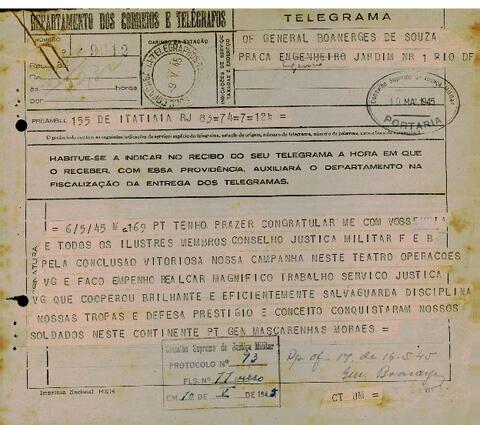 DEPARTAMENTO DOS CORREIOS E TELÉGRAFOS
TELEGRAMA
CARIMBO DA ESTAÇÃO
9 V 45
INDICAÇÕES DE SERVIÇO
TAXADAS E ENDERÊÇO
horas
OF GENERAL BOANERGES DE SOUZA
PRACA ENGENHEIRO JARDIM NR 1 RIO DF
Conselho Supremo de Justiça Militar
10 MAI 1945
PORTARIA
PREAMBULO 155 DE ITATIAIA RJ 85=74=7=12H =
HABITUE-SE A INDICAR NO RECIBO DO SEU TELEGRAMA A HORA EM QUE
O RECEBER. COM ESSA PROVIDÊNCIA, AUXILIARÁ O DEPARTAMENTO NA
FISCALIZAÇÃO DA ENTREGA DOS TELEGRAMAS.
= 6/5/45 N 169 PT TENHO PRAZER CONGRATULAR ME COM VOSSENCIA
E TODOS OS ILUSTRES MEMBROS CONSELHO JUSTICA MILITAR F E B
PELA CONCLUSAO VITORIOSA NOSSA CAMPANHA NESTE TEATRO OPERACOES
VG E FACO EMPENHO REALCAR MAGNIFICO TRABALHO SERVICO JUSTICA
VG QUE COOPEROU BRILHANTE E EFICIENTEMENTE SALVAGUARDA DISCIPLINA
NOSSAS TROPAS E DEFESA PRESTIGIO E CONCEITO CONQUISTARAM NOSSOS
SOLDADOS NESTE CONTINENTE PT GEN MASCARENHAS MORAES =
Conselho Supremo de Justiça Militar
PROTOCOLO Nº 73
FLS. Nº 11 verso
EM 10 DE V DE 1945
of. 17, de 16-5-45
Gen.
Imprensa Nacional
CT UM =